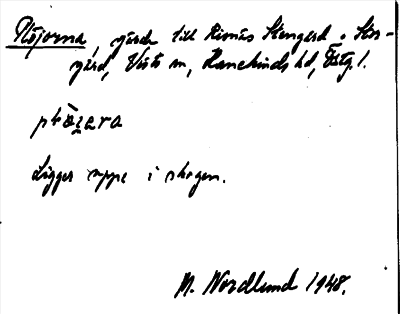 Plöjorna, gärde till Rimås Stengård o Stor-
gård, Vists sn, Hanekinds hd, Östg.l.
Ligger uppe i skogen.
M. Nordlund 1948.